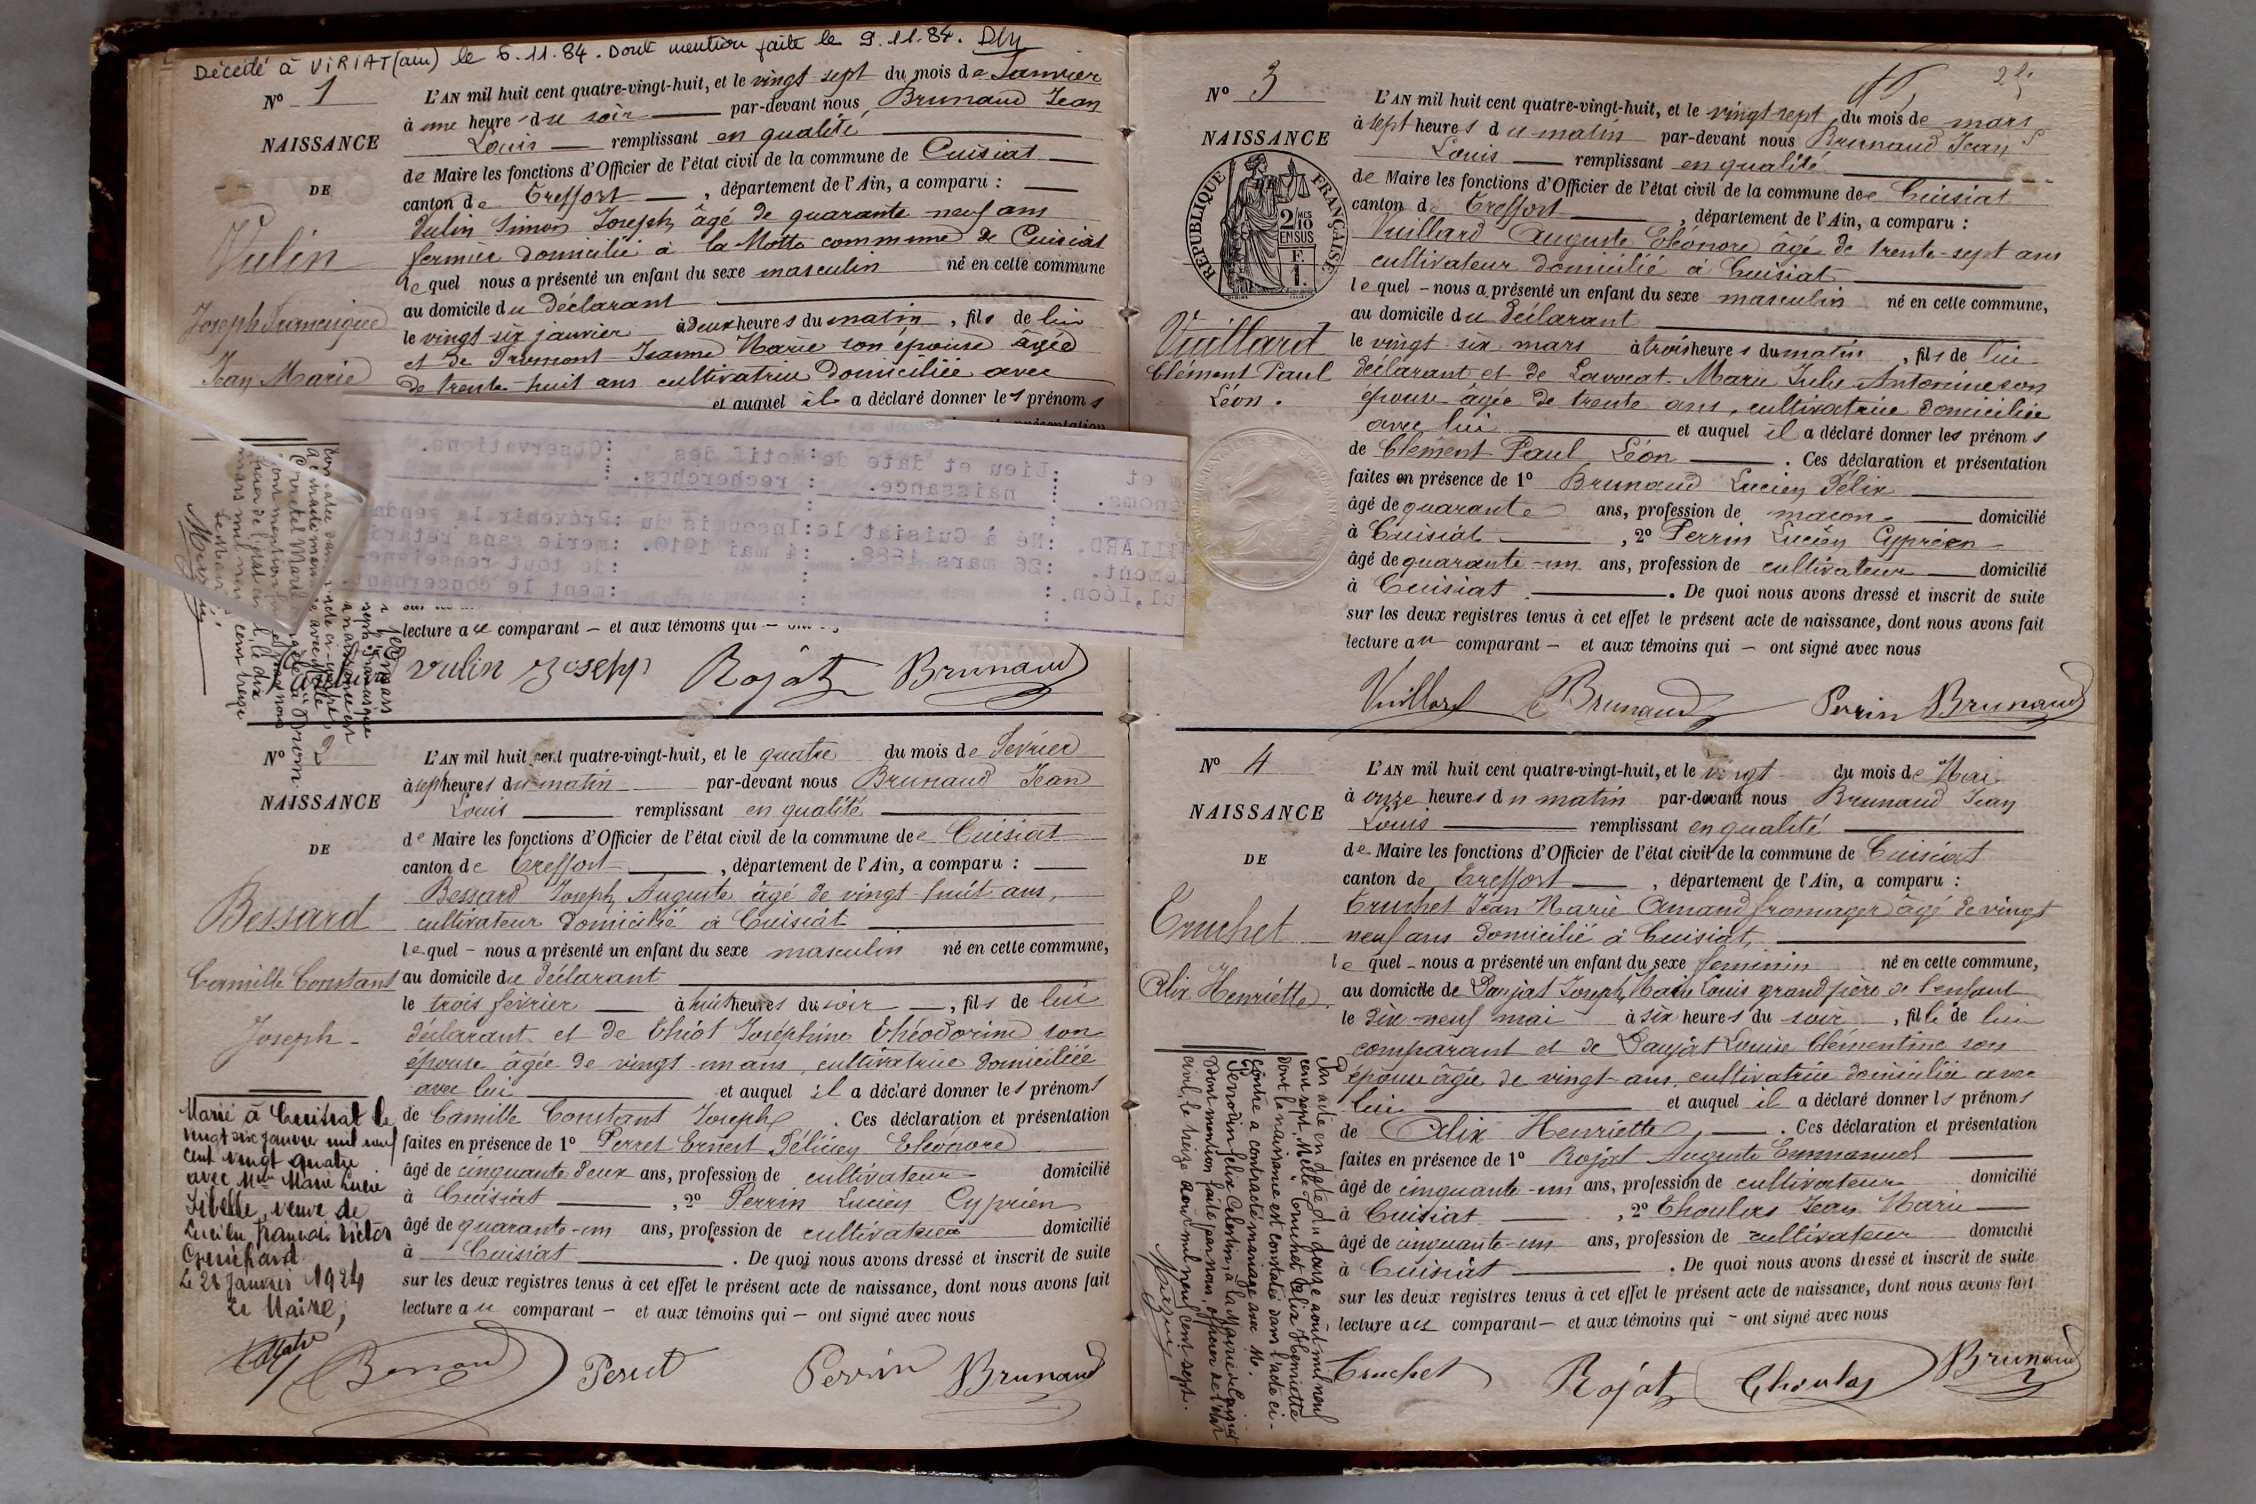 Décédé à VIRIAT (ain) le 6.11.84. Dont mention faite le 9.11.84.
N° 1
NAISSANCE
DE
Vulin
Joseph Francisque
Jean Marie
L'AN mil huit cent quatre-vingt-huit, et le vingt sept du mois de Janvier
à une heure du soir par-devant nous Brunaud Jean
Louis remplissant en qualité
de Maire les fonctions d'Officier de l'état civil de la commune de Cuisiat
canton de Treffort, département de l'Ain, a comparu :
Vulin Simon Joseph âgé de quarante-neuf ans
fermier domicilié à la Motte commune de Cuisiat
lequel nous a présenté un enfant du sexe masculin né en cette commune
au domicile du déclarant
le vingt six janvier à deux heures du matin, fils de lui
et de Jeanne Marie son épouse âgée
de trente-huit ans cultivatrice domiciliée avec
et auquel il a déclaré donner les prénoms
Observations.
Motif des recherches.
Lieu et date de naissance.
Né à Cuisiat le 26 mars 1888.
Insoumis du 4 mai 1910.
Prévenir la gendar
merie sans retard
de tout renseigne-
ment le concernant.
lecture au comparant – et aux témoins qui –
Vulin Joseph Rojat Brunaud
N° 2
NAISSANCE
DE
Bessard
Camille Constant
Joseph
L'AN mil huit cent quatre-vingt-huit, et le quatre du mois de Février
à sept heures du matin par-devant nous Brunaud Jean
Louis remplissant en qualité
de Maire les fonctions d'Officier de l'état civil de la commune de Cuisiat
canton de Treffort, département de l'Ain, a comparu :
Bessard Joseph Auguste âgé de vingt-huit ans,
cultivateur domicilié à Cuisiat
lequel – nous a présenté un enfant du sexe masculin né en cette commune,
au domicile du déclarant
le trois février à huit heures du soir, fils de lui
déclarant et de Thiot Joséphine Théodorine son
épouse âgée de vingt-un ans, cultivatrice domiciliée
avec lui et auquel il a déclaré donner les prénoms
de Camille Constant Joseph. Ces déclaration et présentation
faites en présence de 1° Perret Ernest Félicien Eléonore
âgé de cinquante deux ans, profession de cultivateur domicilié
à Cuisiat, 2° Perrin Lucien Cyprien
âgé de quarante-un ans, profession de cultivateur domicilié
à Cuisiat. De quoi nous avons dressé et inscrit de suite
sur les deux registres tenus à cet effet le présent acte de naissance, dont nous avons fait
lecture au comparant – et aux témoins qui – ont signé avec nous
Marié à Cuisiat le
vingt six janvier mil neuf
cent vingt quatre
avec Marie Lucie
Sibelle, veuve de
Lucien, François Victor
Le 28 Janvier 1924
Le Maire,
Bessard Perret Perrin Brunaud
N° 3
NAISSANCE
REPUBLIQUE FRANÇAISE
Vuillard
Clément Paul
Léon.
L'AN mil huit cent quatre-vingt-huit, et le vingt sept du mois de mars
à sept heures du matin par-devant nous Brunaud Jean
Louis remplissant en qualité
de Maire les fonctions d'Officier de l'état civil de la commune de Cuisiat
canton de Treffort, département de l'Ain, a comparu :
Vuillard Auguste Eléonore âgé de trente-sept ans
cultivateur domicilié à Cuisiat
lequel – nous a présenté un enfant du sexe masculin né en cette commune,
au domicile du déclarant
le vingt-six mars à trois heures du matin, fils de lui
déclarant et de Lavocat Marie Julie Antonine son
épouse âgée de trente ans, cultivatrice domiciliée
avec lui et auquel il a déclaré donner les prénoms
de Clément Paul Léon. Ces déclaration et présentation
faites en présence de 1° Brunaud Lucien Félix
âgé de quarante ans, profession de maçon domicilié
à Cuisiat, 2° Perrin Lucien Cyprien
âgé de quarante-un ans, profession de cultivateur domicilié
à Cuisiat. De quoi nous avons dressé et inscrit de suite
sur les deux registres tenus à cet effet le présent acte de naissance, dont nous avons fait
lecture au comparant – et aux témoins qui – ont signé avec nous
Vuillard Brunaud Perrin Brunaud
N° 4
NAISSANCE
DE
Truchet
Alix Henriette
L'AN mil huit cent quatre-vingt-huit, et le vingt du mois de Mai
à onze heures du matin par-devant nous Brunaud Jean
Louis remplissant en qualité
de Maire les fonctions d'Officier de l'état civil de la commune de Cuisiat
canton de Treffort, département de l'Ain, a comparu :
Truchet Jean Marie Amand fromager âgé de vingt
neuf ans domicilié à Cuisiat,
lequel – nous a présenté un enfant du sexe féminin né en cette commune,
au domicile de Daujat Joseph Marie Louis grand père de l'enfant
le dix-neuf mai à six heures du soir, fille de lui
comparant et de Daujat Louise Clémentine son
épouse âgée de vingt-ans, cultivatrice domiciliée avec
lui et auquel il a déclaré donner les prénoms
de Alix Henriette. Ces déclaration et présentation
faites en présence de 1° Rojat Auguste Emmanuel
âgé de cinquante-un ans, profession de cultivateur domicilié
à Cuisiat, 2° Jean Marie
âgé de cinquante-un ans, profession de cultivateur domicilié
à Cuisiat. De quoi nous avons dressé et inscrit de suite
sur les deux registres tenus à cet effet le présent acte de naissance, dont nous avons fait
lecture aux comparant – et aux témoins qui – ont signé avec nous
Par acte en date du douze août mil neuf
cent sept, Melle Truchet Alix Henriette
dont la naissance est constatée dans l'acte ci-
contre a contracté mariage avec Mr.
Dont mention faite par nous, officier de l'état
civil, le treize août mil neuf cent sept.
Truchet Rojat Brunaud